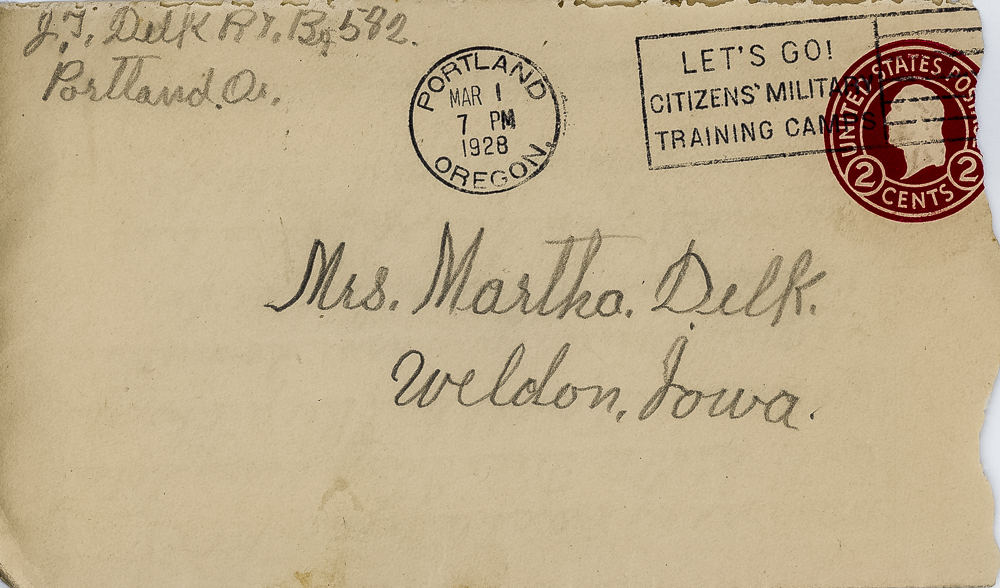 J.T. Delk Rt. 1. Bx 582.
Portland. Or.
PORTLAND
MAR 1
7 PM
1928
OREGON.
LET'S GO!
CITIZENS' MILITARY
TRAINING CAMPS
UNITED STATES POSTAGE
2 CENTS 2
Mrs. Martha. Delk.
Weldon, Iowa.